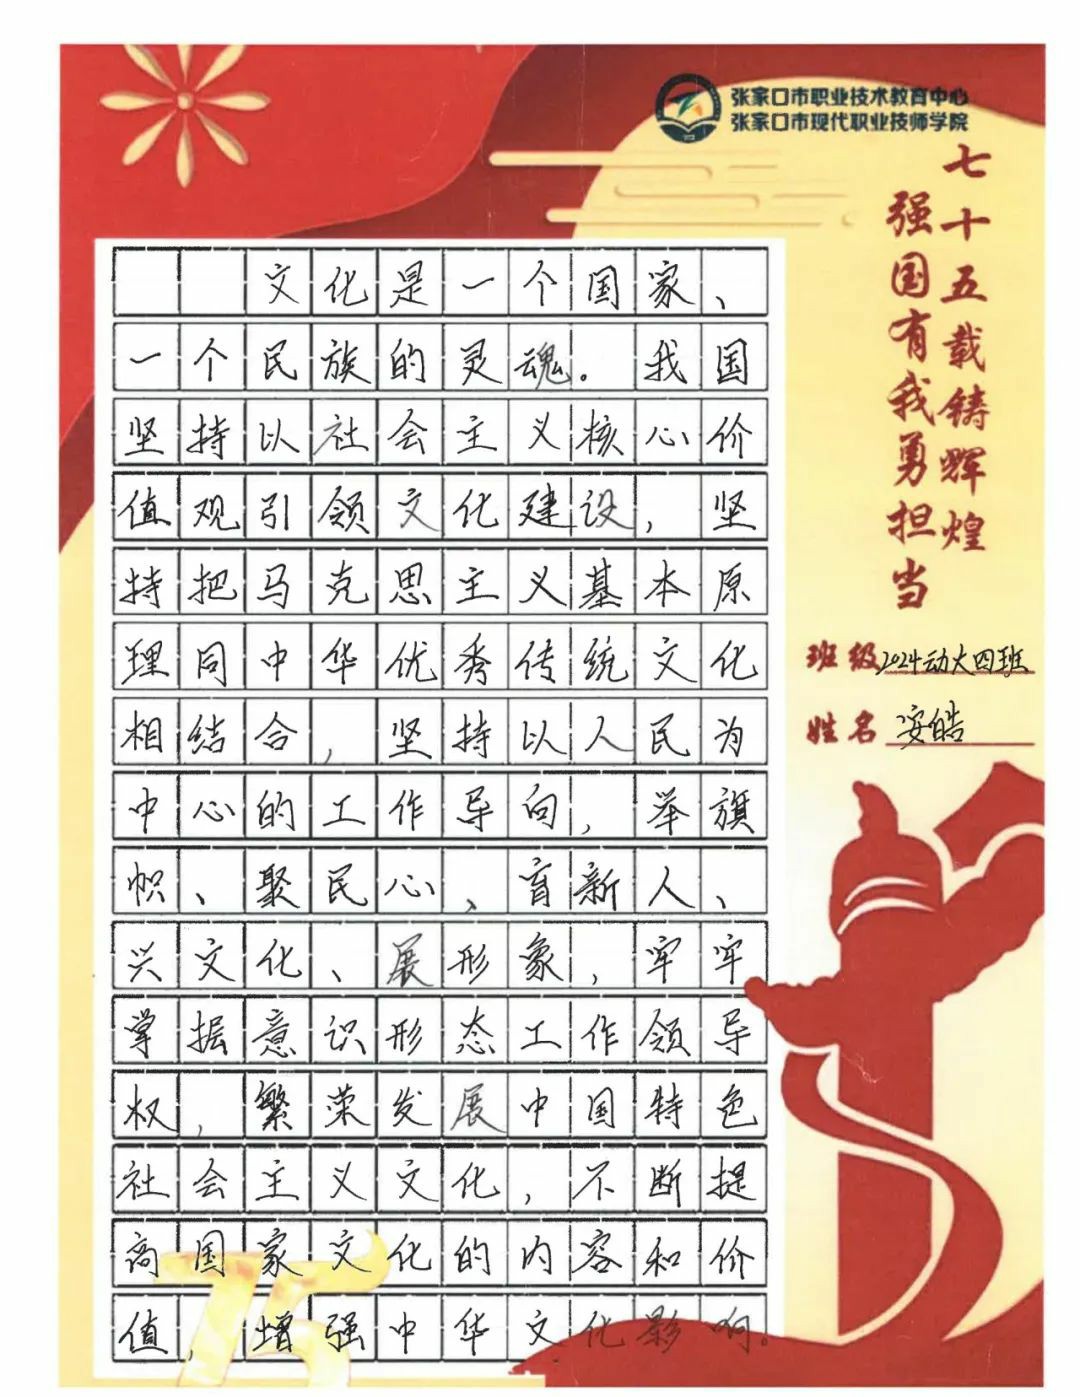 张家口市职业技术教育中心
张家口市现代职业技师学院
七十五载铸辉煌
强国有我勇担当
文化是一个国家、
一个民族的灵魂。我国
坚持以社会主义核心价
值观引领文化建设，坚
持把马克思主义基本原
理同中华优秀传统文化
相结合，坚持以人民为
中心的工作导向，举旗
帜、聚民心、育新人、
兴文化、展形象，牢牢
掌握意识形态工作领导
权，繁荣发展中国特色
社会主义文化，不断提
高国家文化的内容和价
值，增强中华文化影响。
班级2024动大四班
姓名 安皓
75